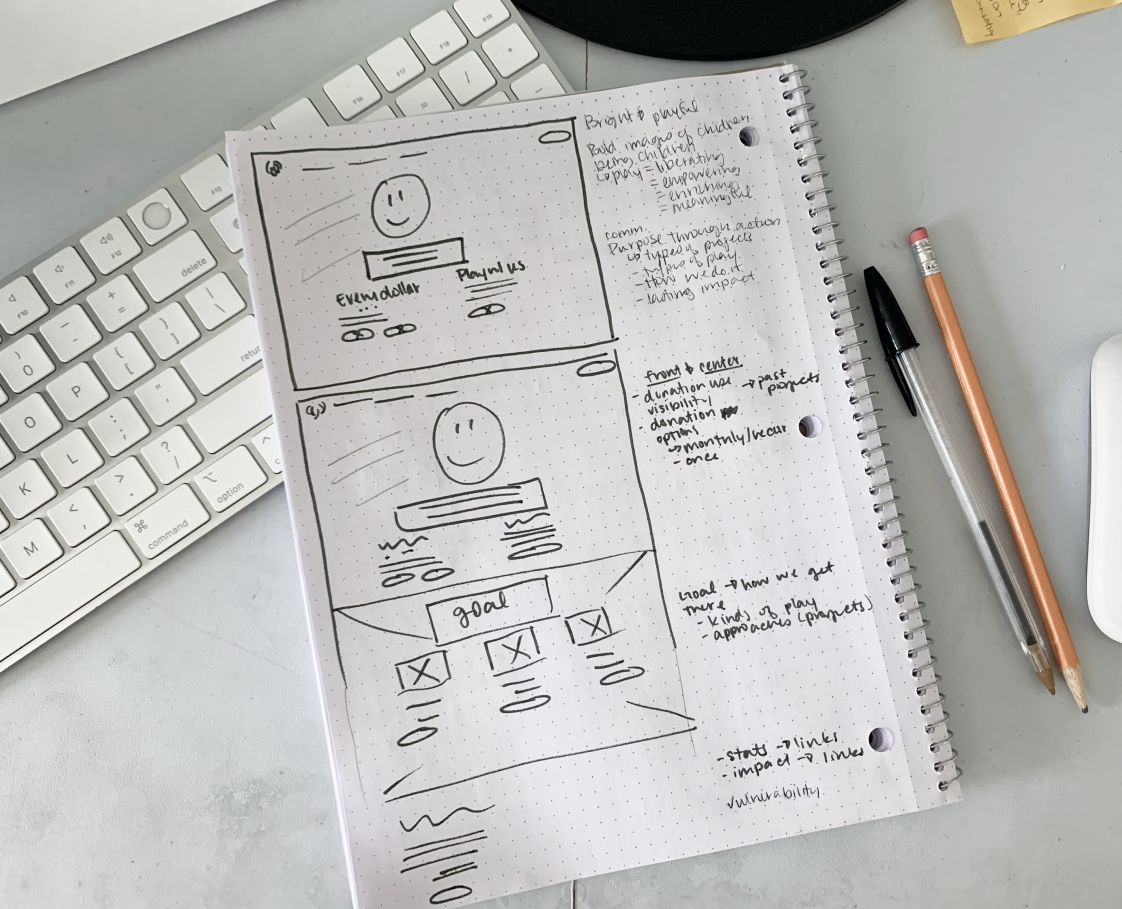 Bright & playful
Bold images of children
being children
↳ play = liberating
= empowering
= enriching
= meaningful
comm.
Purpose through action
↳ types of projects
- types of play
- How we do it
- lasting impact
Every dollar
Playful us.
front & center
- donation use → past projects
visibility
- donation
options
↳ monthly/recur
- once
goal
Goal → how we get
there
- kinds of play
- approaches (projects)
- stats → links
- impact → links
vulnerability
delete
return
option
command
⌘
F10
F12
F13
F15
F17
F18
F19
O
P
K
L
M